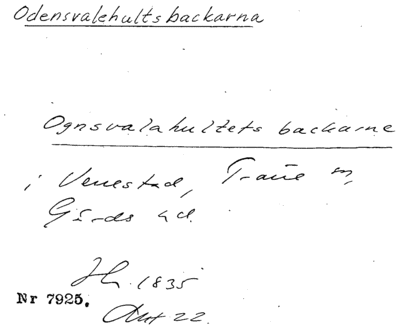 Odensvalehultsbackarna
Ognsvalahultets backarne
i Venestad, Trane sn,
Gärds hd.
1835
Nr 7925.
Akt 22.